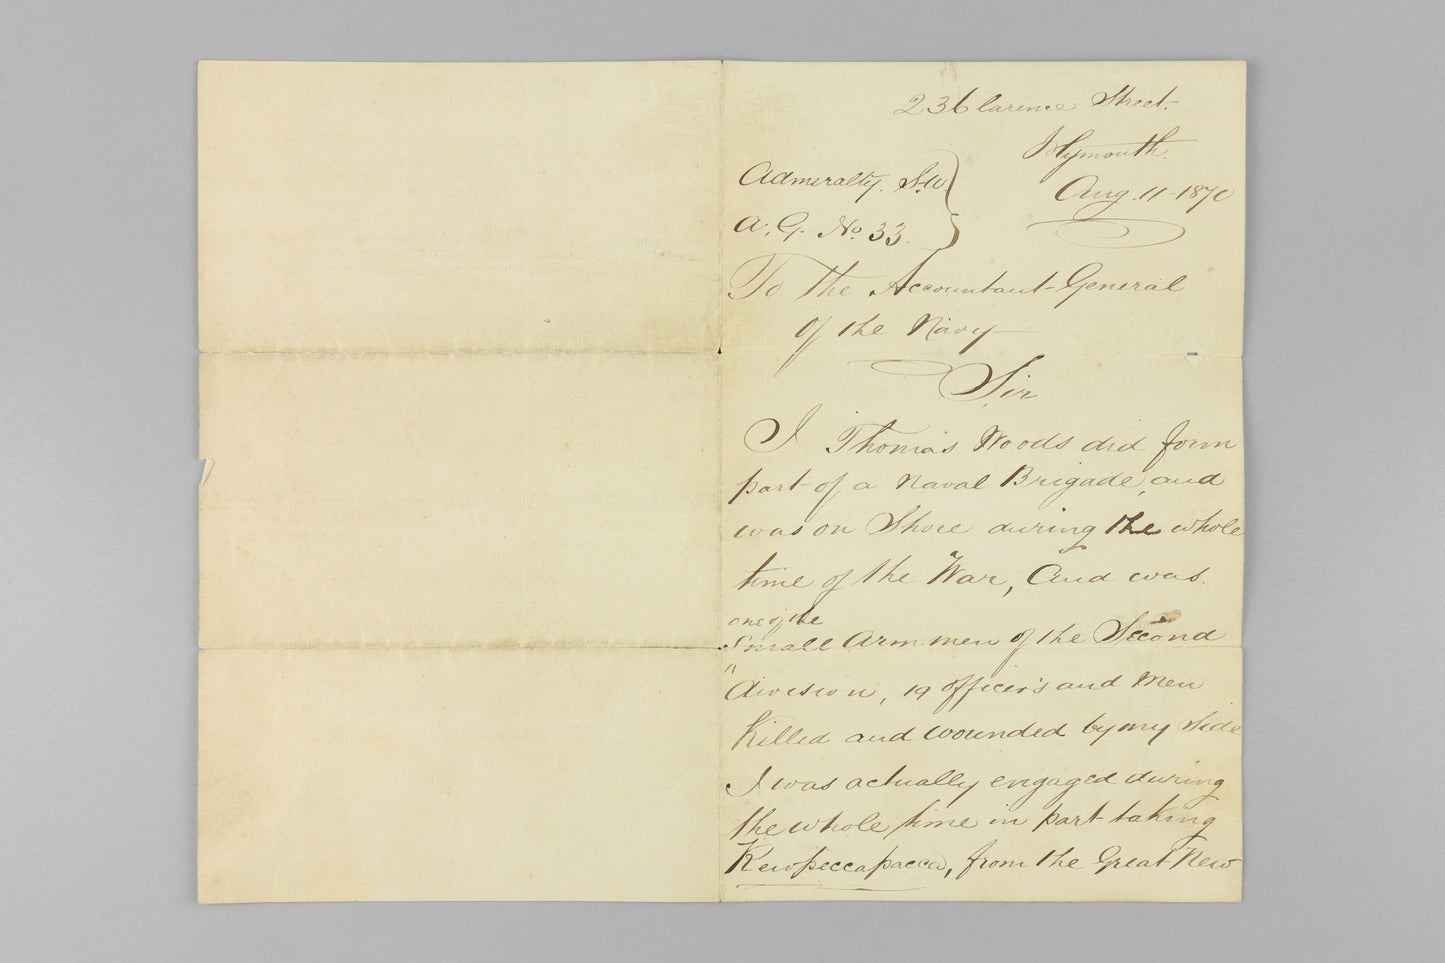 23 Clarence Street-
Plymouth.
Aug. 11-1870
Admiralty. S.W.
A. G. No. 33.
To the Accountant-General
of the Navy-
Sir
I Thomas Woods did form
part of a Naval Brigade, and
was on Shore during the whole
time of the War, And was.
one of the
Small Arm men of the Second
Division, 19 officer's and Men
Killed and wounded by my Side
I was actually engaged during
the whole time in part taking
Kewpeccapacca, from the Great New